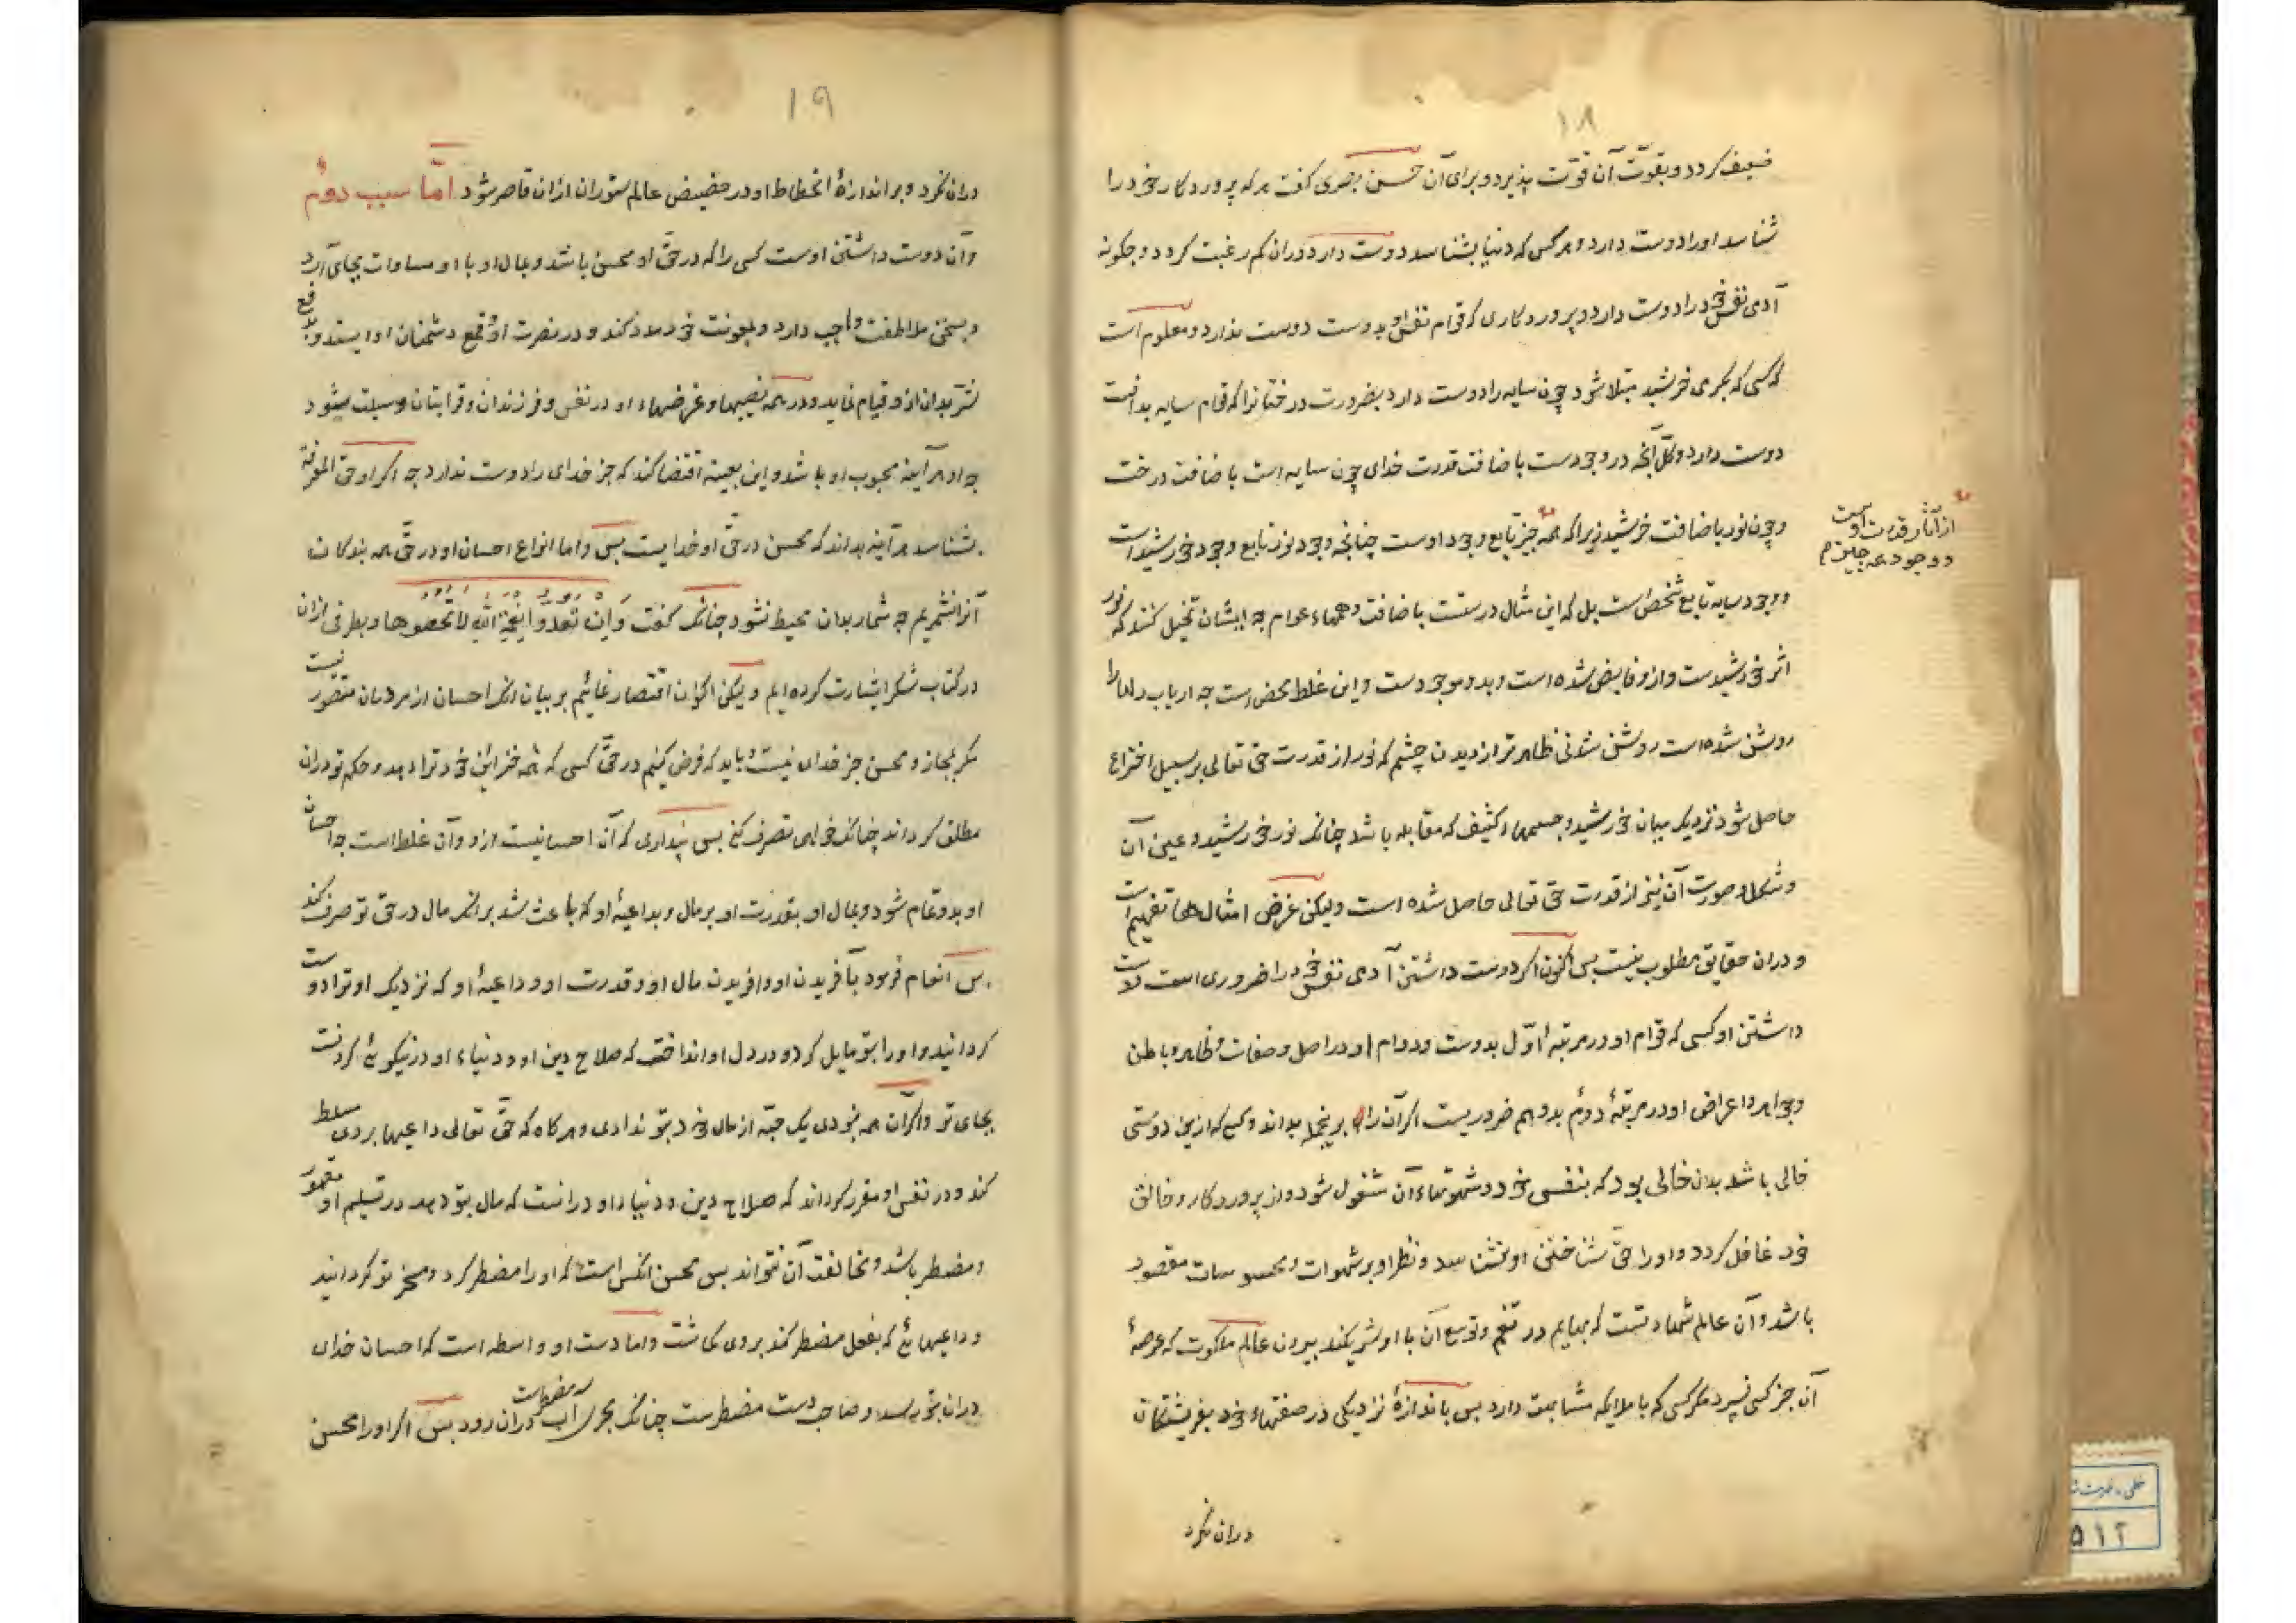 ۱۸
ضعیف گردد و بقوّت آن قوّت پذیرد و برای آن حسن بصری گفت هر که پروردگار خود را
شناسد او را دوست دارد و هر کس که دنیا بشناسد دوست دارد دران کم رغبت گردد و چگونه
آدمی نفس خود را دوست دارد و پروردکاری که قوام نفس او بدوست دوست ندارد و معلوم است
که کسی که بگرمی خرشید مبتلا شود چون سایه را دوست دارد بضرورت درختانرا که قوام سایه بدانست
دوست دارد و کلّ آنچه در وجودست باضافت قدرت خدای چون سایه است باضافت درخت
و چون نور باضافت خرشید زیرا که همه چیز تابع وجود اوست چنانچه وجود نور تابع وجود خورشید است
از آثار قدرت اوست
و وجود همه چیز
و وجود سایه تابع شخص است بل که این مثال درستست باضافت وهمهاء عوام چه ایشان تخیل کنند که نور
اثر خورشیدست و ازو فایض شده است و بدو موجودست و این غلط محض است چه ارباب دلها را
روشن شده است روشن شدنی ظاهرتر از دیدن چشم که نور از قدرت حق تعالی بر سبیل اختراع
حاصل شود نزدیک میان خورشید و جسمهاء کثیف که مقابله باشد چنانک نور خورشید و عین آن
و شکل و صورت آن نیز از قدرت حق تعالی حاصل شده است ولیکن غرض امثالها تفهیم است
و دران حقایق مطلوب نیست بس اکنون اگر دوست داشتن آدمی نفس خود را ضروری است
داشتن او کسی که قوام او در مرتبهٔ اوّل بدوست و دوام او در اصل و صفات و ظاهر و باطن
و جواهر و اعراض او در مرتبهٔ دوم بدو هم ضروریست اگر آن را برینجمله بداند و کسی که ازین دوستی
خالی باشد بدان خالی بود که بنفس خود و شهوتهاء آن مشغول شود و از پروردکار و خالق
خود غافل گردد و او را حقّ شناختن او نشناسد و نظر او بر شهوات و محسوسات مقصور
باشد و آن عالم شهادتست که بهایم در تنعّم و توسع آن با او شریکند بیرون عالم ملکوت که عرصهٔ
آن جز کسی نسپرد مگر کسی که با ملایکه مشابهت دارد بس باندازهٔ نزدیکی در صفتهاء خود بفریشتکان
دران نگرد
۱۹
دران نگرد و براندازهٔ انحطاط او در حضیض عالم ستوران ازان قاصر شود امّا سبب دوم
و آن دوست داشتن اوست کسی را که در حقّ او محسن باشد و بمال او با او مساوات بجای آرد
و بسخن ملاطفت واجب دارد و بمعونت خود مدد کند و در نصرت او و قمع دشمنان او ایستد و بدفع
شرّ بدان ازو قیام نماید و در همه نصیبها و غرضهاء او در نفس و فرزندان و قرابتان وسیلت شود
چه او هر آینه محبوب او باشد و این بعینه اقتضا کند که جز خدای را دوست ندارد چه اگر او حقّ المعرفة
بشناسد هر آینه بداند که محسن در حقّ او خدایست بس و اما انواع احسان او در حقّ همه بندکان
آنرا نشمریم چه شمار بدان محیط نشود چنانک گفت وَاِن تَعُدّوا نِعْمَةَ اللّٰهِ لا تُحصوها و بطرفی ازان
در کتاب شکر اشارت کرده ایم ولیکن اکنون اقتصار نمائیم بر بیان انک احسان از مردمان متصوّر نیست
مگر بمجاز و محسن جز خدای نیست و باید که فرض کنیم در حقّ کسی که همه خزائن خود ترا دهد و حکم تو دران
مطلق گرداند چنانک خواهی تصرف کنی بس پنداری که آن احسانیست ازو و آن غلط است چه احسان
او بدو تمام شود و بمال او و بقدرت او بر مال و بداعیهٔ او که باعث شد بر انک مال در حق تو صرف کند
بس انعام فرمود بآفریدن او و افریدن مال او و قدرت او و داعیهٔ او که نزدیک او ترا دوست
گردانید و او را بتو مایل کرد و در دل او انداخت که صلاح دین او و دنیاء او در نیکوئی کردنست
بجای تو و اگر آن همه نبودی یک حبّه از مال خود بتو ندادی و هر گاه که حقّ تعالی داعیها بر وی مسلط
کند و در نفس او مقرر گرداند که صلاح دین و دنیاء او درانست که مال بتو دهد در تسلیم او مقهور
و مضطر باشد و مخالفت آن نتواند بس محسن انکس است که او را مضطر کرد و مسخر تو گردانید
و داعیهائی که بفعل مضطر کند بر وی گماشت و اما دست او واسطه است که احسان خدای
دران بتو رسد و صاحب دست مضطرست چنانک مجری آب دران رود مضطرست بس اگر او را محسن
۵۱۲